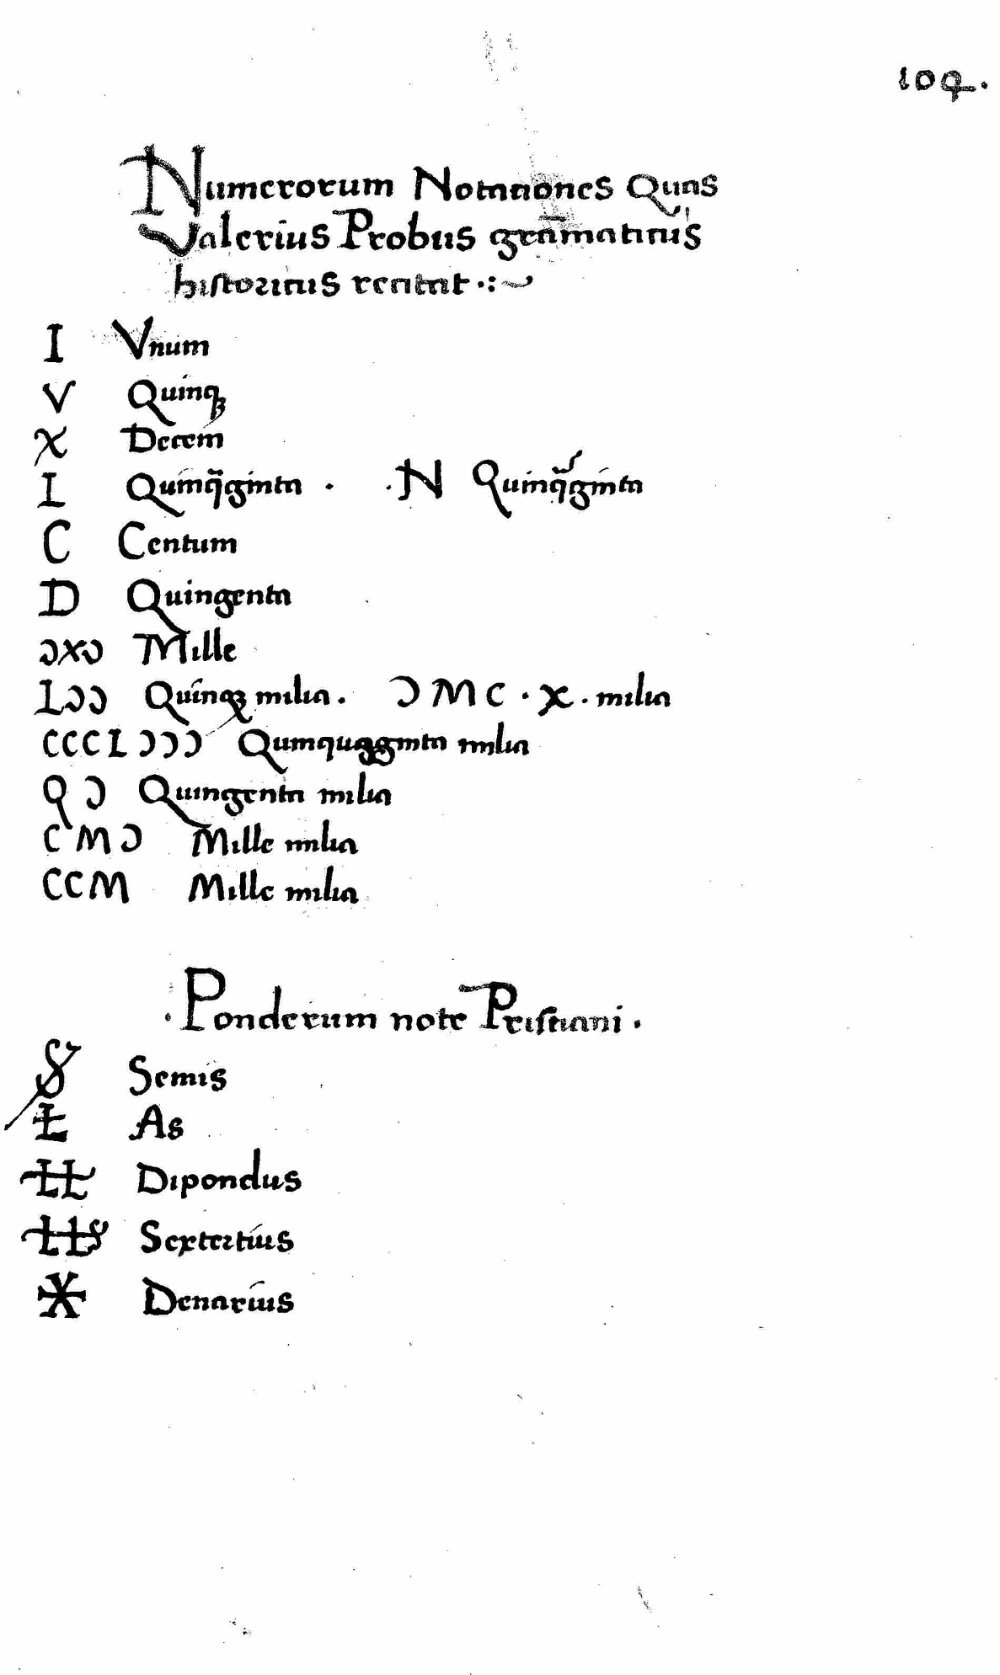 104.
Numerorum Notationes Quas
Valerius Probus grãmaticus
historicus recitat
I Vnum
V Quinqꝫ
X Decem
L Quinq̃ginta . .N Quinq̃ginta
C Centum
D Quingenta
ↄxↄ Mille
Lↄↄ Quinqꝫ milia. Ↄ M C . X . milia
CCCLↃↃↃ Quinquaginta milia
Q Ↄ Quingenta milia
C M Ↄ Mille milia
CCM Mille milia
. Ponderum note Pristiani .
Semis
As
Dipondus
Sextertius
Denarius